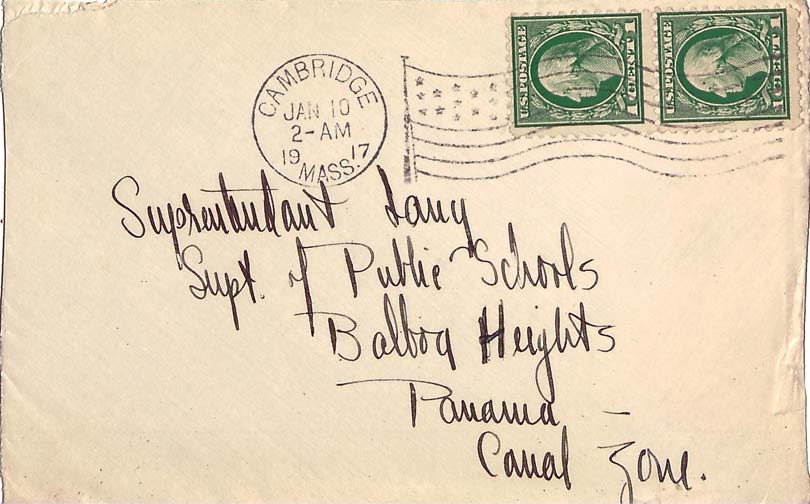 CAMBRIDGE
JAN 10
2-AM
1917
MASS.
U.S.POSTAGE
1 CENT 1
U.S.POSTAGE
1 CENT 1
Suprentendant Lang
Supt. of Public Schools
Balboa Heights
Panama -
Canal Zone.